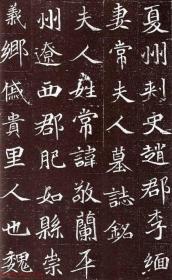 夏州刾史趙郡李緬
妻常夫人墓誌銘
夫人姓常諱敬蘭平
州遼西郡肥如縣崇
義鄉戚貴里人也魏